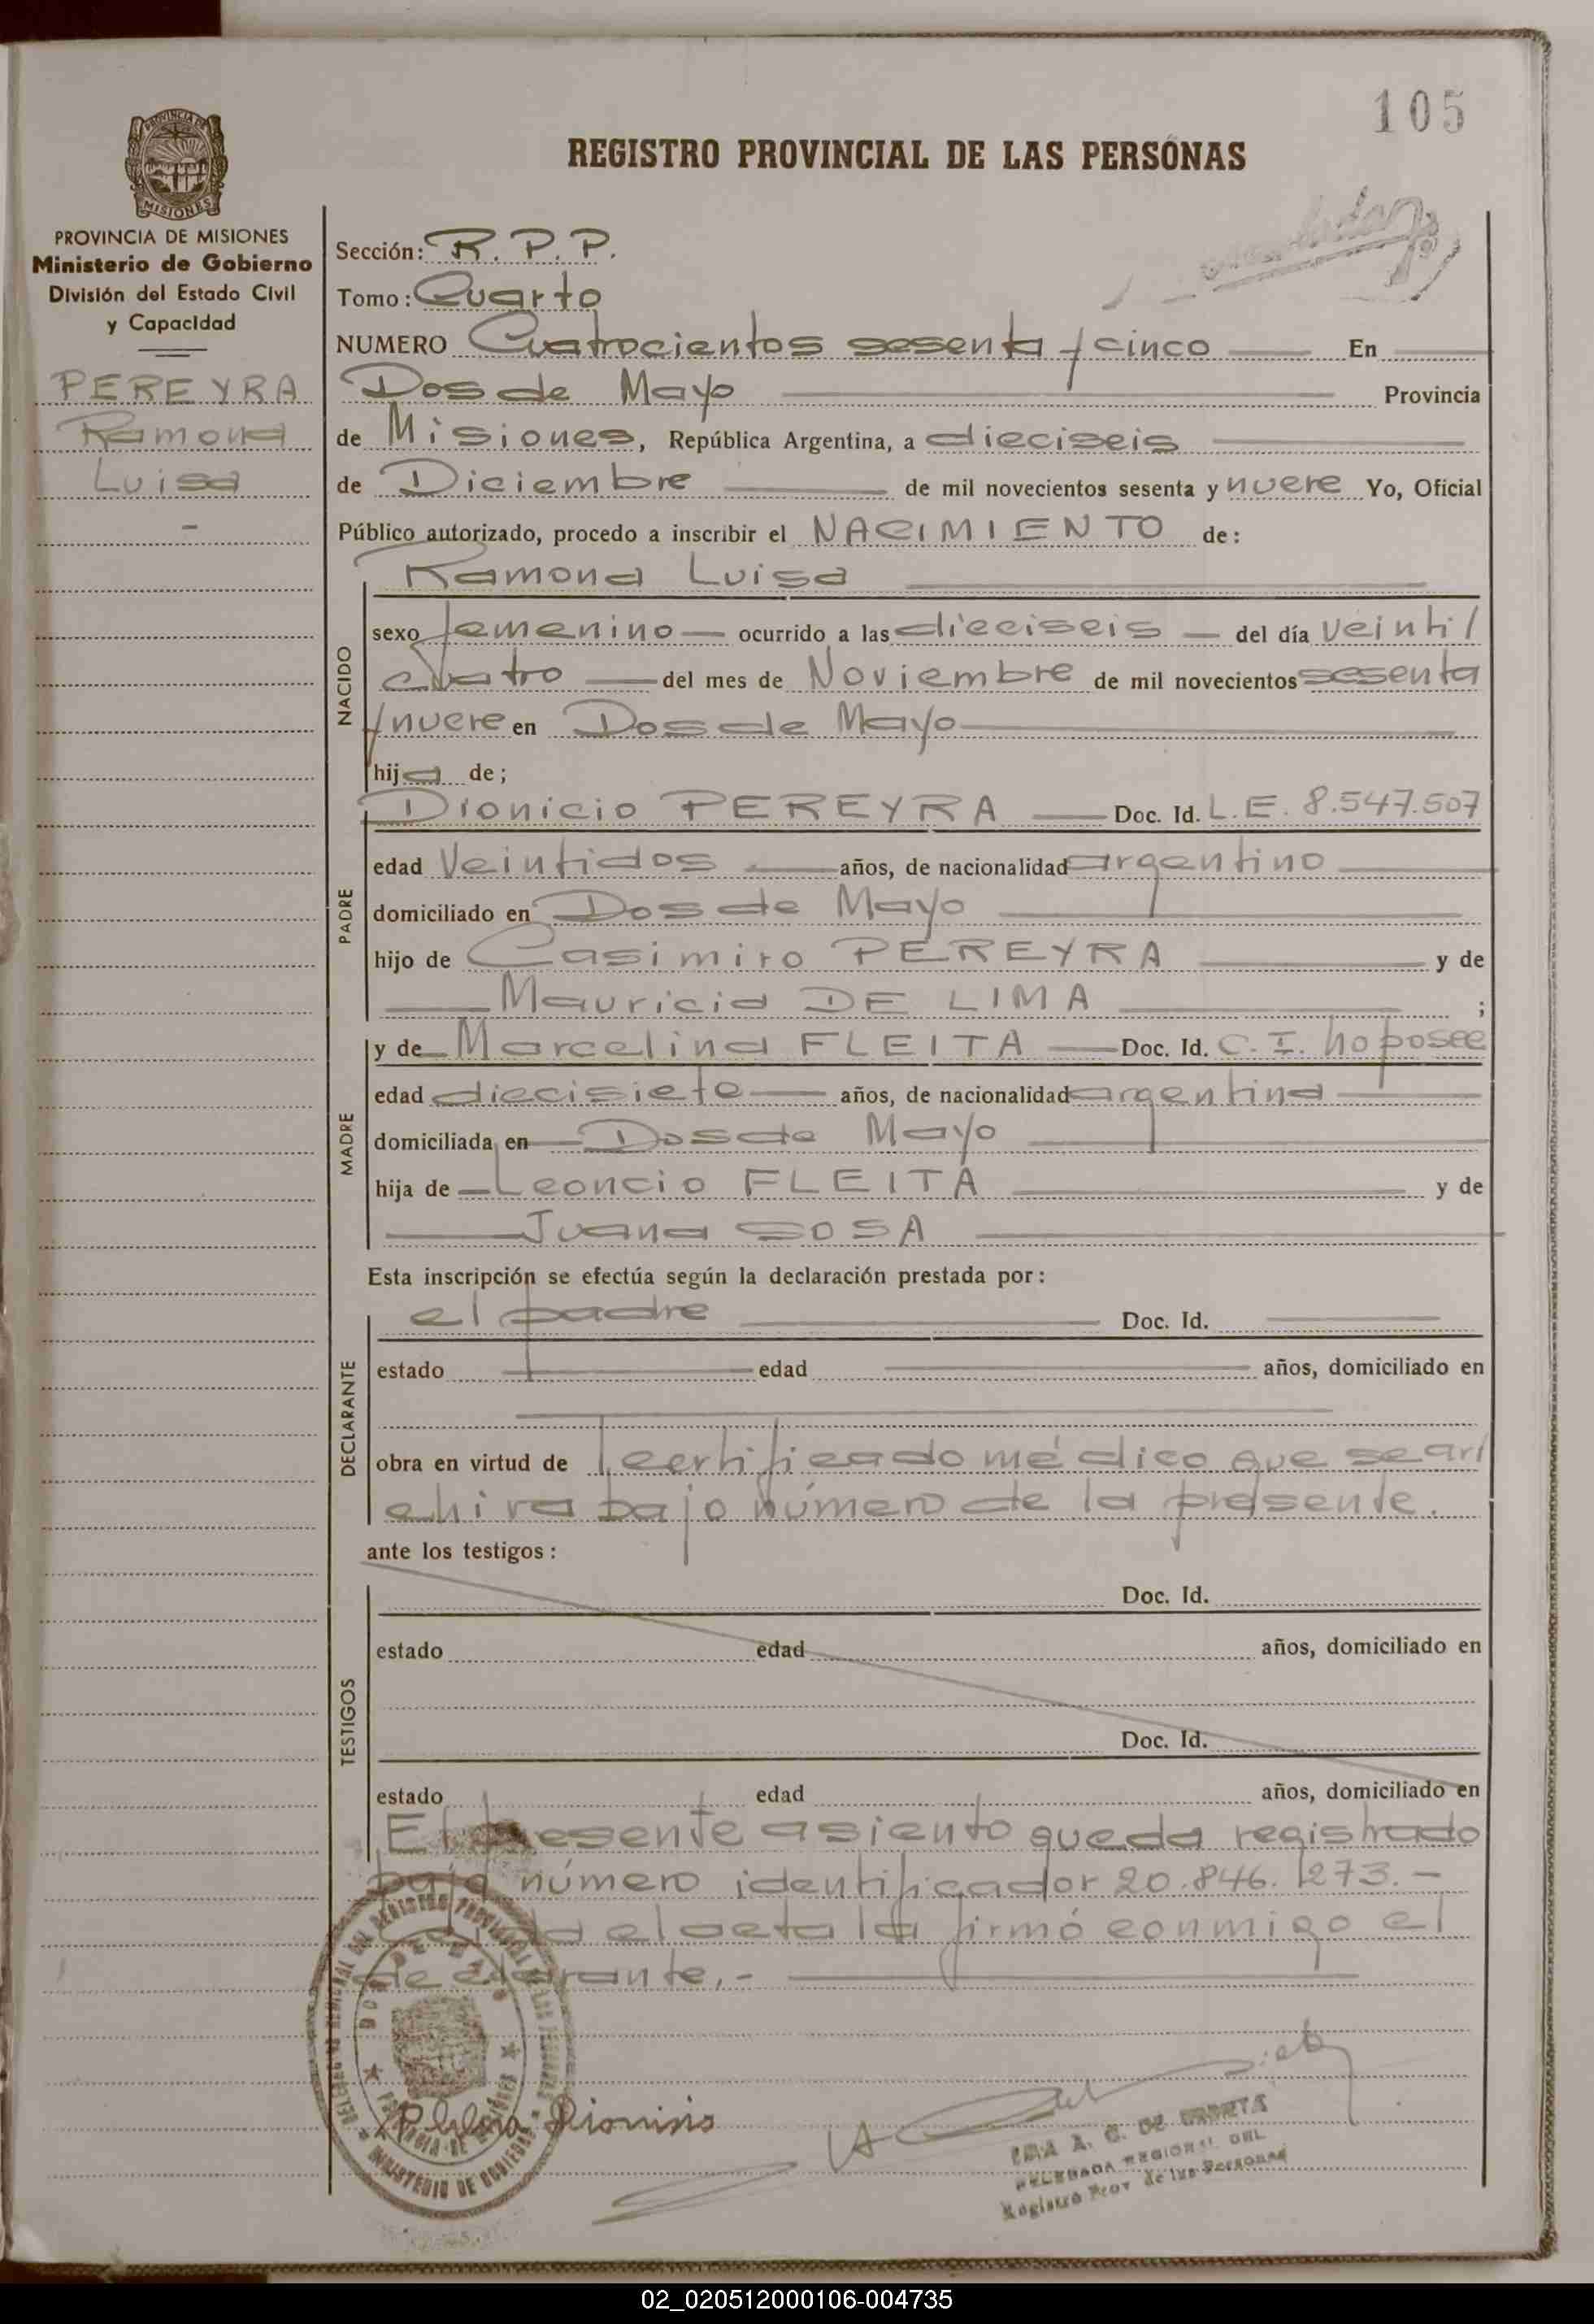 105
REGISTRO PROVINCIAL DE LAS PERSONAS
PROVINCIA DE MISIONES
PROVINCIA DE MISIONES
Ministerio de Gobierno
División del Estado Civil
y Capacidad
PEREYRA
Ramona
Luisa
Sección: R. P. P.
Tomo: Cuarto
NUMERO Cuatrocientos sesenta y cinco En
Dos de Mayo Provincia
de Misiones, República Argentina, a dieciseis
de Diciembre de mil novecientos sesenta y nueve Yo, Oficial
Público autorizado, procedo a inscribir el NACIMIENTO de:
Ramona Luisa
NACIDO
sexo femenino ocurrido a las dieciseis del día veinti/
cuatro del mes de Noviembre de mil novecientos sesenta
y nueve en Dos de Mayo
hija de;
PADRE
Dionicio PEREYRA Doc. Id. L.E. 8.547.507
edad Veintidos años, de nacionalidad argentino
domiciliado en Dos de Mayo
hijo de Casimiro PEREYRA y de
Mauricia DE LIMA ;
MADRE
y de Marcelina FLEITA Doc. Id. C.I. no posee
edad diecisiete años, de nacionalidad argentina
domiciliada en Dos de Mayo
hija de Leoncio FLEITA y de
Juana SOSA
Esta inscripción se efectúa según la declaración prestada por:
DECLARANTE
el padre Doc. Id.
estado edad años, domiciliado en
obra en virtud de certificado médico que se ar/
chiva bajo número de la presente.
ante los testigos:
TESTIGOS
Doc. Id.
estado edad años, domiciliado en
Doc. Id.
estado edad años, domiciliado en
El presente asiento queda registrado
bajo número identificador 20.846.273.-
el acta la firmó conmigo el
declarante.-
Dionisio
A. C. DE
DELEGADA REGIONAL DEL
Registro Prov de las Personas
MINISTERIO DE GOBIERNO
02_020512000106-004735